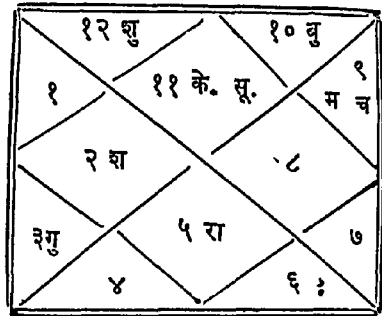 १२ शु १० बु
१ ११ के. सू. ९
म च
२ श ८
३गु ५ रा ७
४ ६